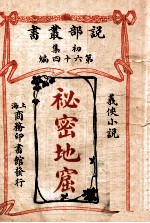 說部叢書
初集
第六十四編
義俠小說
祕密地窟
上海
商務印書館發行